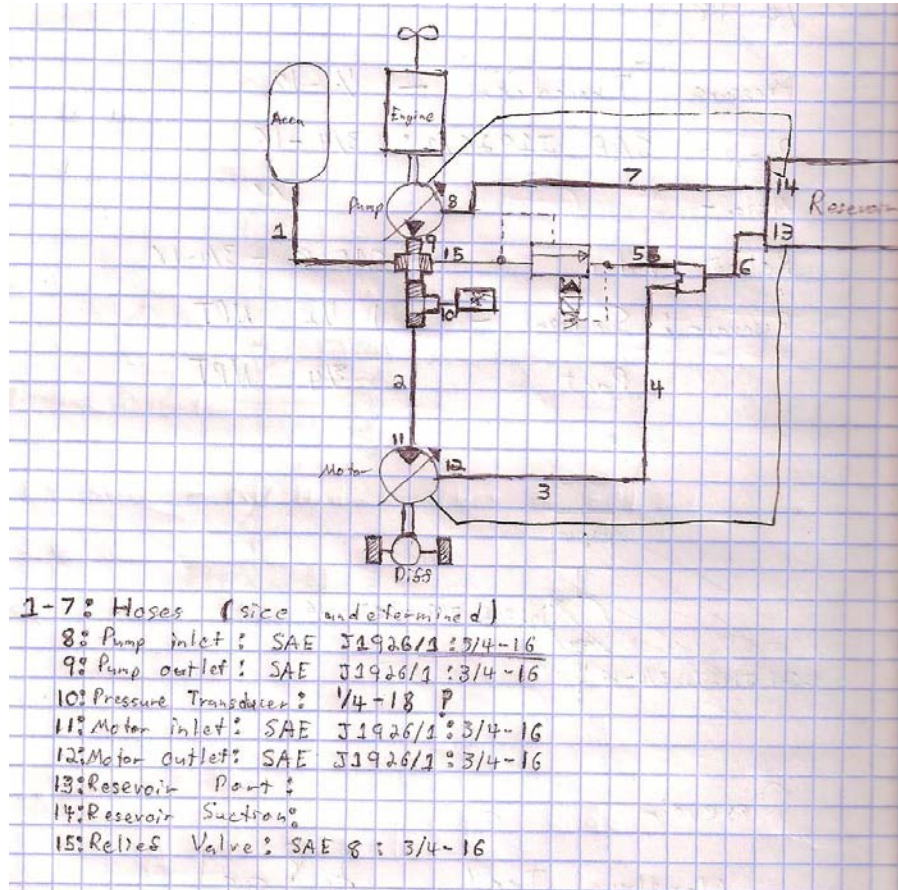 Accu
Engine
Pump
8
7
14
Resevoir
13
1
9
15
5
6
10
2
4
11
Motor
12
3
Diff
1-7: Hoses (sice undetermined)
8: Pump inlet: SAE J1926/1: 3/4-16
9: Pump outlet: SAE J1926/1: 3/4-16
10: Pressure Transducer: 1/4-18 ?
11: Motor inlet: SAE J1926/1: 3/4-16
12: Motor outlet: SAE J1926/1: 3/4-16
13: Resevoir Port:
14: Resevoir Suction:
15: Relief Valve: SAE 8: 3/4-16